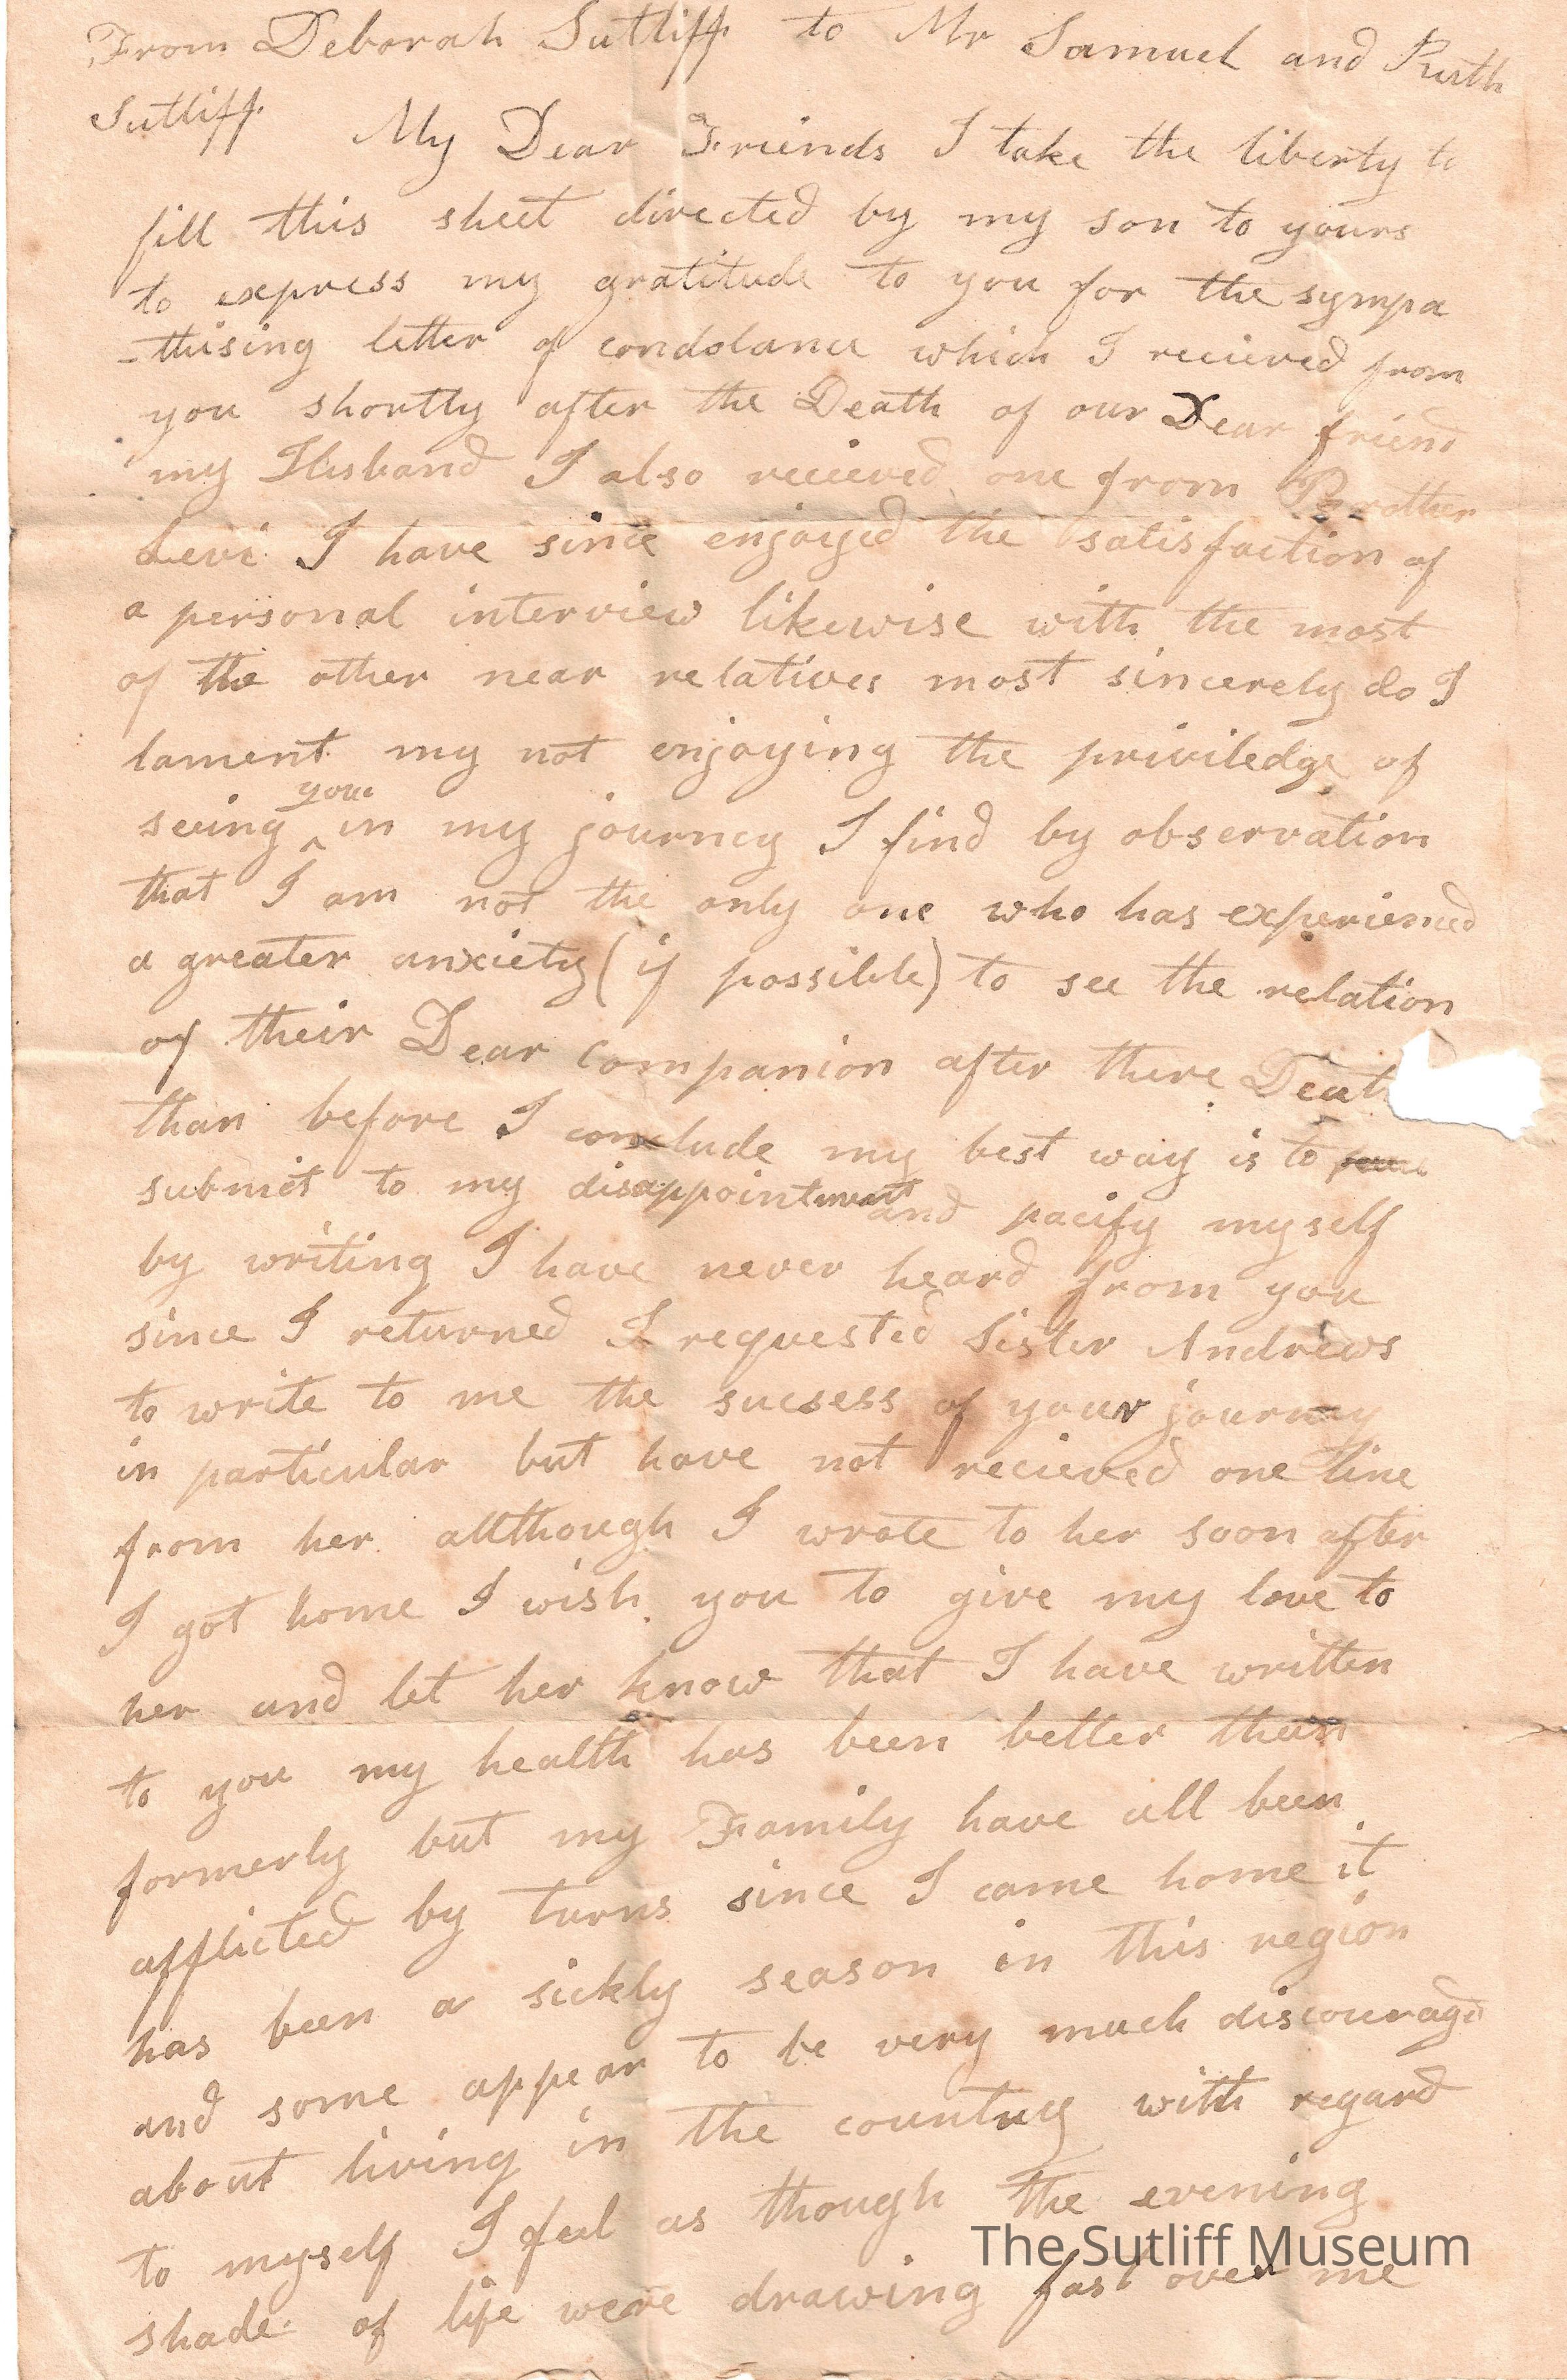 From Deborah Sutliff to Mr Samuel and Ruth
Sutliff My Dear Friends I take the liberty to
fill this sheet directed by my son to yours
to express my gratitude to you for the sympa
-thising letter of condolance which I recieved from
you shortly after the Death of our Dear friend
my Husband I also recieved one from Brother
Levi I have since enjoyed the satisfaction of
a personal interview likewise with the most
of the other near relatives most sincerely do I
lament my not enjoying the priviledge of
seeing you in my journey I find by observation
that I am not the only one who has experienced
a greater anxiety (if possible) to see the relation
of their Dear companion after there Death
than before I conclude my best way is to
submit to my disappointment and pacify myself
by writing I have never heard from you
since I returned I requested Sister Andrews
to write to me the sucsess of your journey
in particular but have not recieved one line
from her allthough I wrote to her soon after
I got home I wish you to give my love to
her and let her know that I have written
to you my health has been better than
formerly but my Family have all been
afflicted by turns since I came home it
has been a sickly season in this region
and some appear to be very much discouraged
about living in the country with regard
to myself I feel as though the evening
shade of life were drawing fast over me
The Sutliff Museum